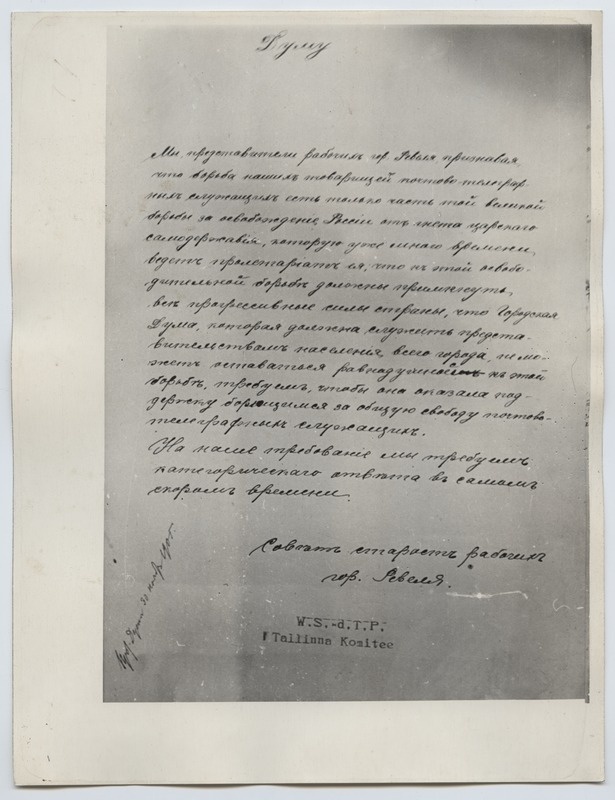 Думу
Мы, представители рабочихъ гор. Ревеля, признавая,
что борьба нашихъ товарищей почтово-телеграф-
ныхъ служащихъ есть только часть той великой
борьбы за освобожденіе Россіи отъ гнета царскаго
самодержавія, которую уже много времени
ведетъ пролетаріатъ ея, что къ этой освобо-
дительной борьбѣ должны примкнуть
всѣ прогрессивные силы страны, что Городская
Дума, которая должна служить предста-
вительствомъ населенія всего города, не мо-
жетъ оставаться равнодушной къ этой
борьбѣ, требуемъ, чтобы она оказала под-
держку борющимся за общую свободу почтово-
телеграфныхъ служащихъ.
На наше требованіе мы требуемъ
категорическаго отвѣта въ самомъ
скоромъ времени.
Совѣтъ старостъ рабочихъ
гор. Ревеля.
W.S.-d.T.P.
Tallinna Komitee
1905.